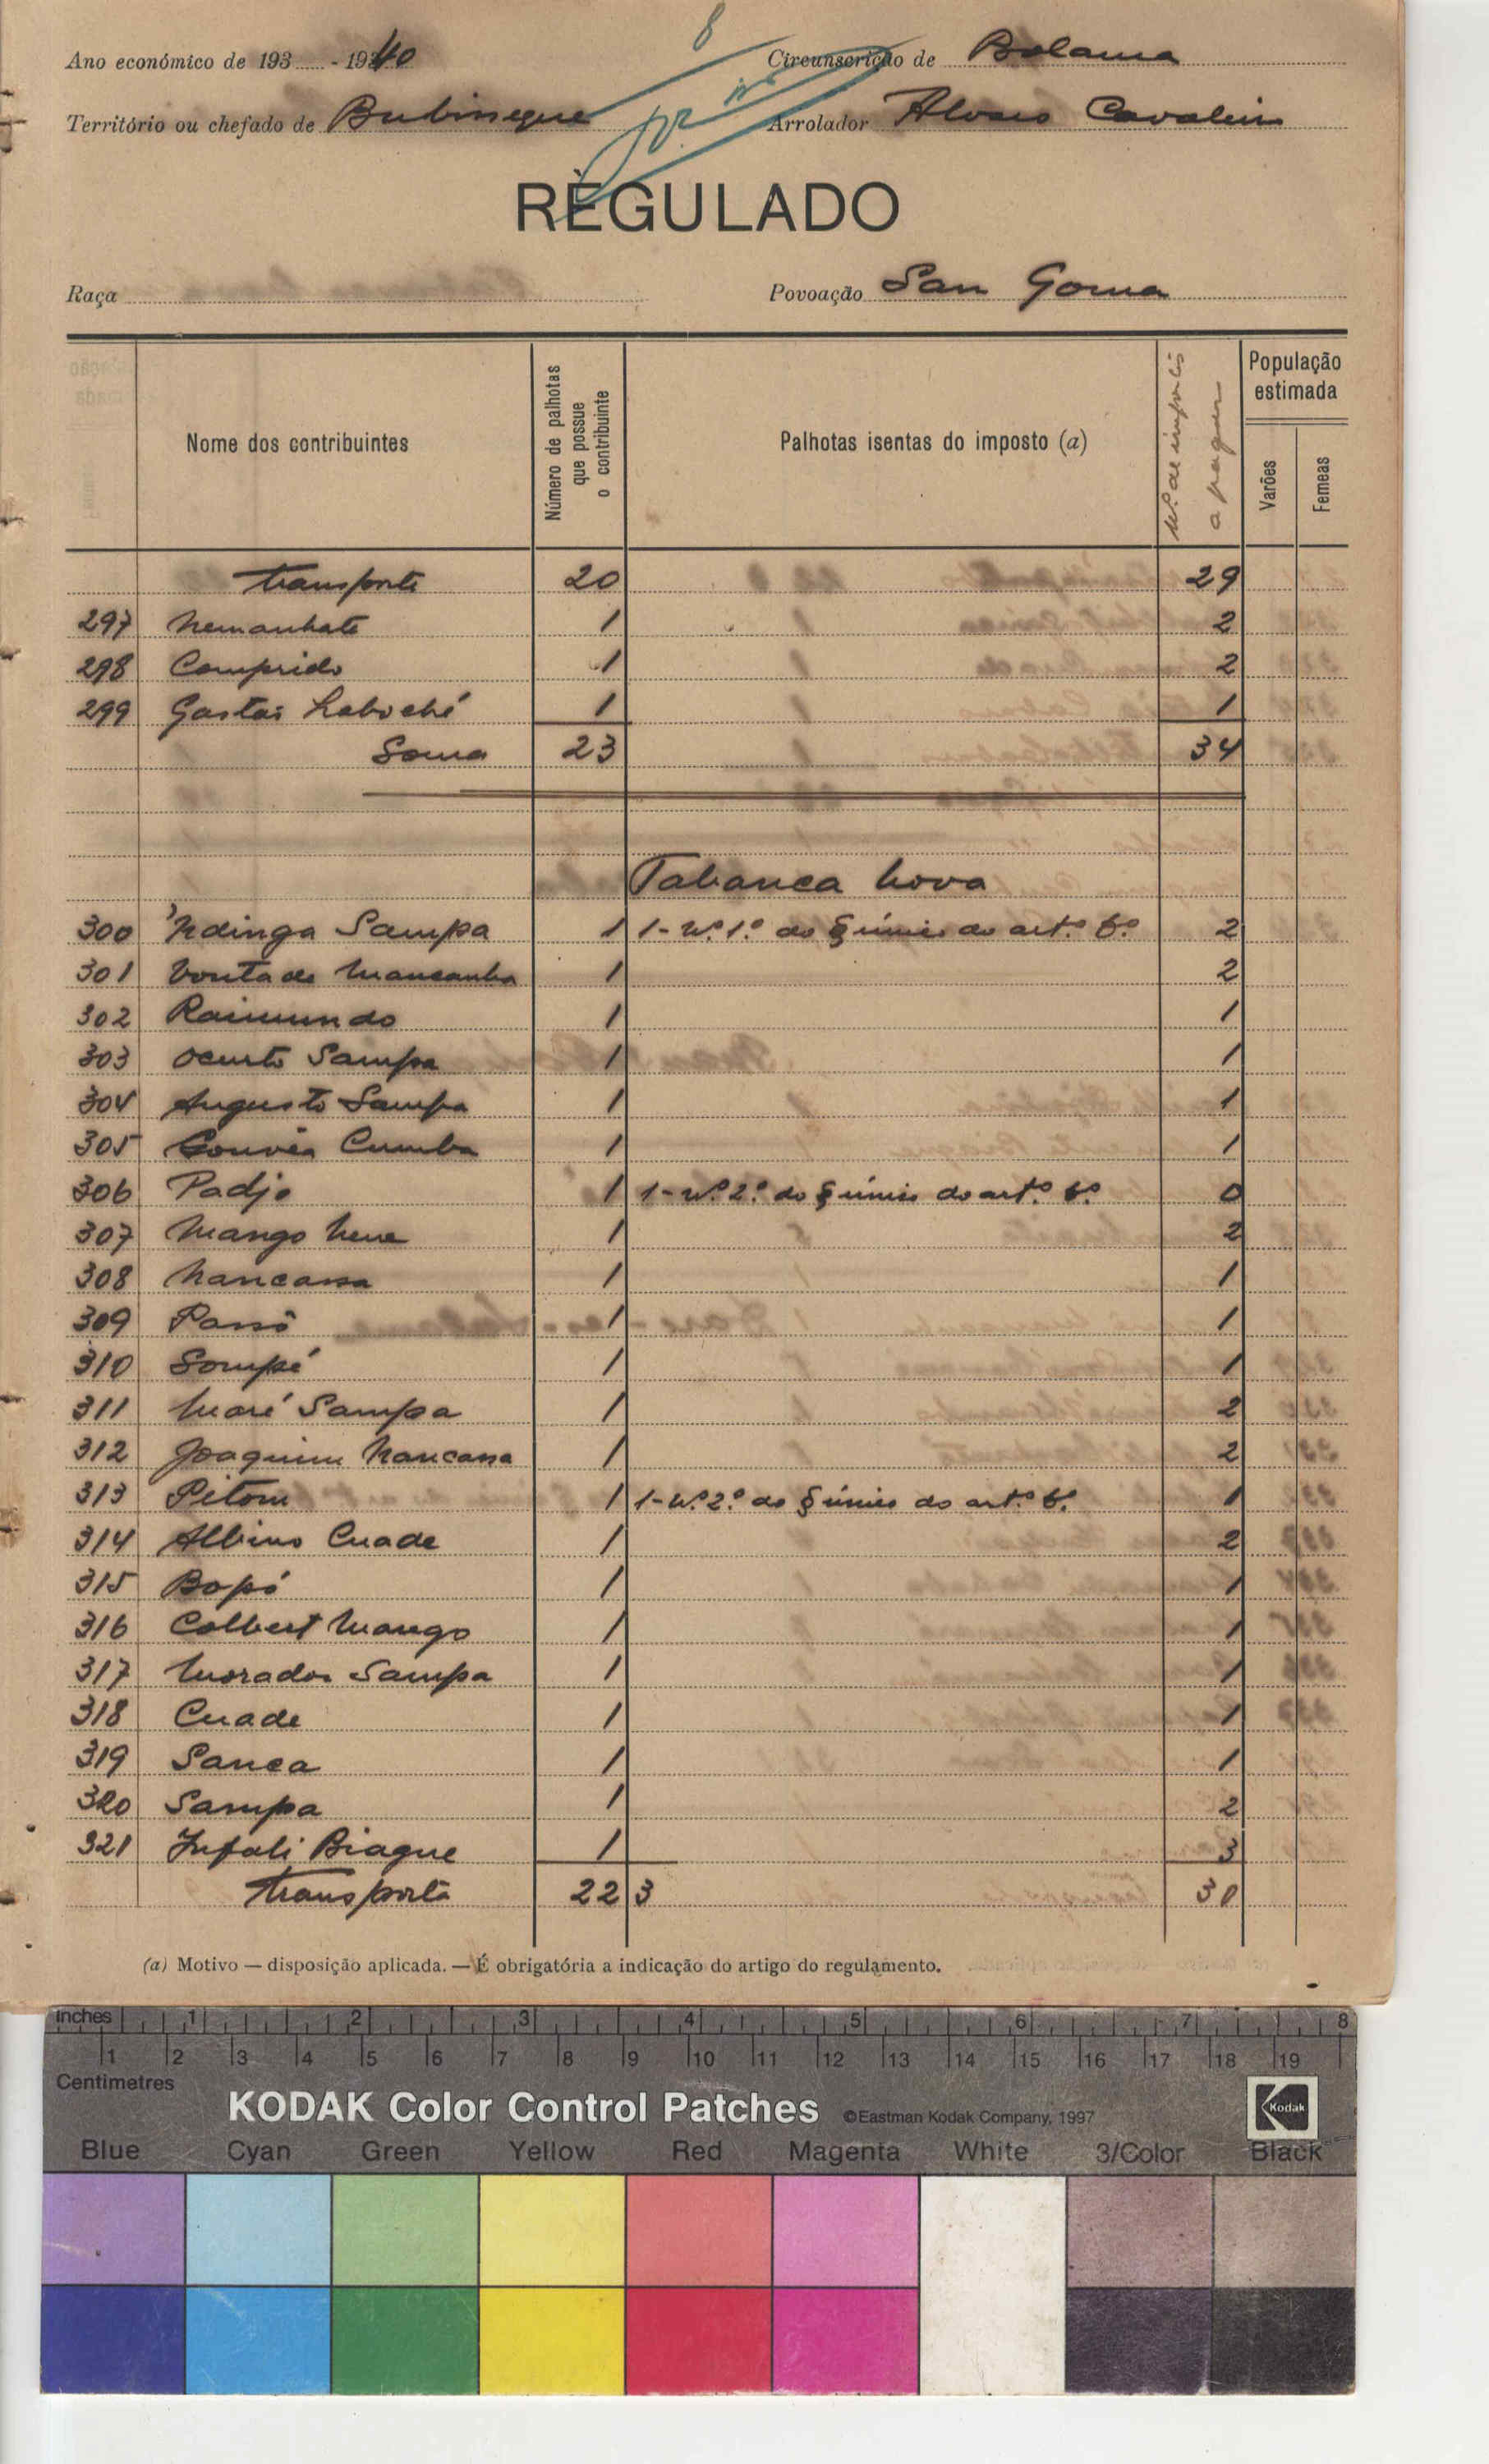 8
Ano económico de 193 - 1940 Circunscrição de Bolama
Território ou chefado de Bubinque Arrolador Alvaro Cavaleiro
REGULADO
Raça Povoação San Goma
Nome dos contribuintes Número de palhotas que possue o contribuinte Palhotas isentas do imposto (a) Nº de impostos a pagar População estimada Varões Femeas
Transporte 20 29
297 Nemanhate 1 2
298 Comprido 1 2
299 Gastão Laboché 1 1
Soma 23 34
Tabanca Nova
300 'Ndinga Sampa 1 1 - Nº 1º do § único do artº 6º 2
301 Vontade Mancanha 1 2
302 Raimundo 1 1
303 Ocurto Sampa 1 1
304 Augusto Sampa 1 1
305 Gouvêa Cumba 1 1
306 Padjo 1 1 - Nº 2º do § único do artº 6º 0
307 Mango Nene 1 2
308 Nancassa 1 1
309 Passô 1 1
310 Sompé 1 1
311 Maré Sampa 1 2
312 Joaquim Nancassa 1 2
313 Pitom 1 1 - Nº 2º do § único do artº 6º 1
314 Albino Cuade 1 2
315 Bopó 1 1
316 Colbert Mango 1 1
317 Morador Sampa 1 1
318 Cuade 1 1
319 Sanca 1 1
320 Sampa 1 2
321 Infali Biague 1 3
Transporte 22 3 30
(a) Motivo — disposição aplicada. — É obrigatória a indicação do artigo do regulamento.
inches 1 2 3 4 5 6 7 8
1 2 3 4 5 6 7 8 9 10 11 12 13 14 15 16 17 18 19
Centimetres
KODAK Color Control Patches ©Eastman Kodak Company, 1997 Kodak
Blue Cyan Green Yellow Red Magenta White 3/Color Black